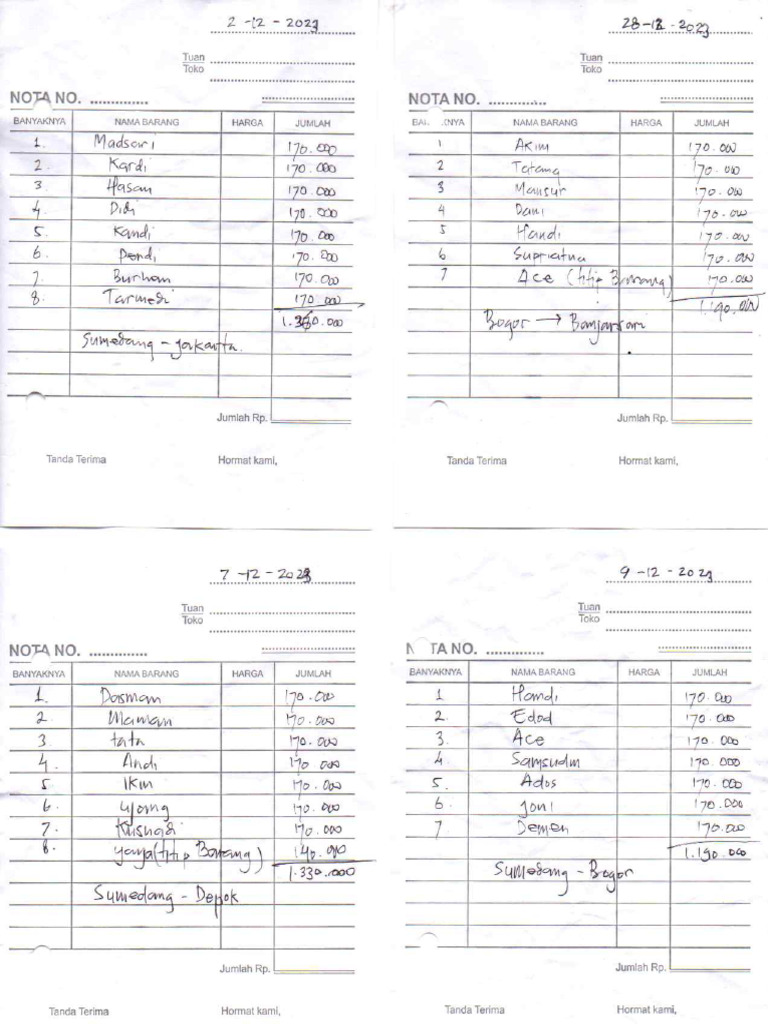 2-12-2023
Tuan
Toko
NOTA NO. ..............
BANYAKNYA NAMA BARANG HARGA JUMLAH
1. Madsari 170.000
2. Kardi 170.000
3. Hasan 170.000
4. Didi 170.000
5. Kandi 170.000
6. Dendi 170.000
7. Burhan 170.000
8. Tarmedi 170.000
1.360.000
Sumedang - Jakarta.
Jumlah Rp.
Tanda Terima Hormat kami,
28-12-2023
Tuan
Toko
NOTA NO. ..............
NAMA BARANG HARGA JUMLAH
1 Akim 170.000
2 Tatang 170.000
3 Mansur 170.000
4 Dani 170.000
5 Handi 170.000
6 Supriatna 170.000
7 Ace (titip Barang) 170.000
1.190.000
Bogor → Banjarsari
Jumlah Rp.
Tanda Terima Hormat kami,
7-12-2023
Tuan
Toko
NOTA NO. ..............
BANYAKNYA NAMA BARANG HARGA JUMLAH
1. Dasman 170.000
2. Maman 170.000
3 tata 170.000
4. Andi 170.000
5. Ikin 170.000
6. Ujang 170.000
7. Kusnadi 170.000
8. yaya (titip Barang) 140.000
1.330.000
Sumedang - Depok
Jumlah Rp.
Tanda Terima Hormat kami,
9-12-2023
Tuan
Toko
NOTA NO. ..............
BANYAKNYA NAMA BARANG HARGA JUMLAH
1 Hamdi 170.000
2. Edod 170.000
3. Ace 170.000
4 Samsudin 170.000
5. Ados 170.000
6. Joni 170.000
7 Demen 170.000
1.190.000
Sumedang - Bogor
Jumlah Rp.
Tanda Terima Hormat kami,